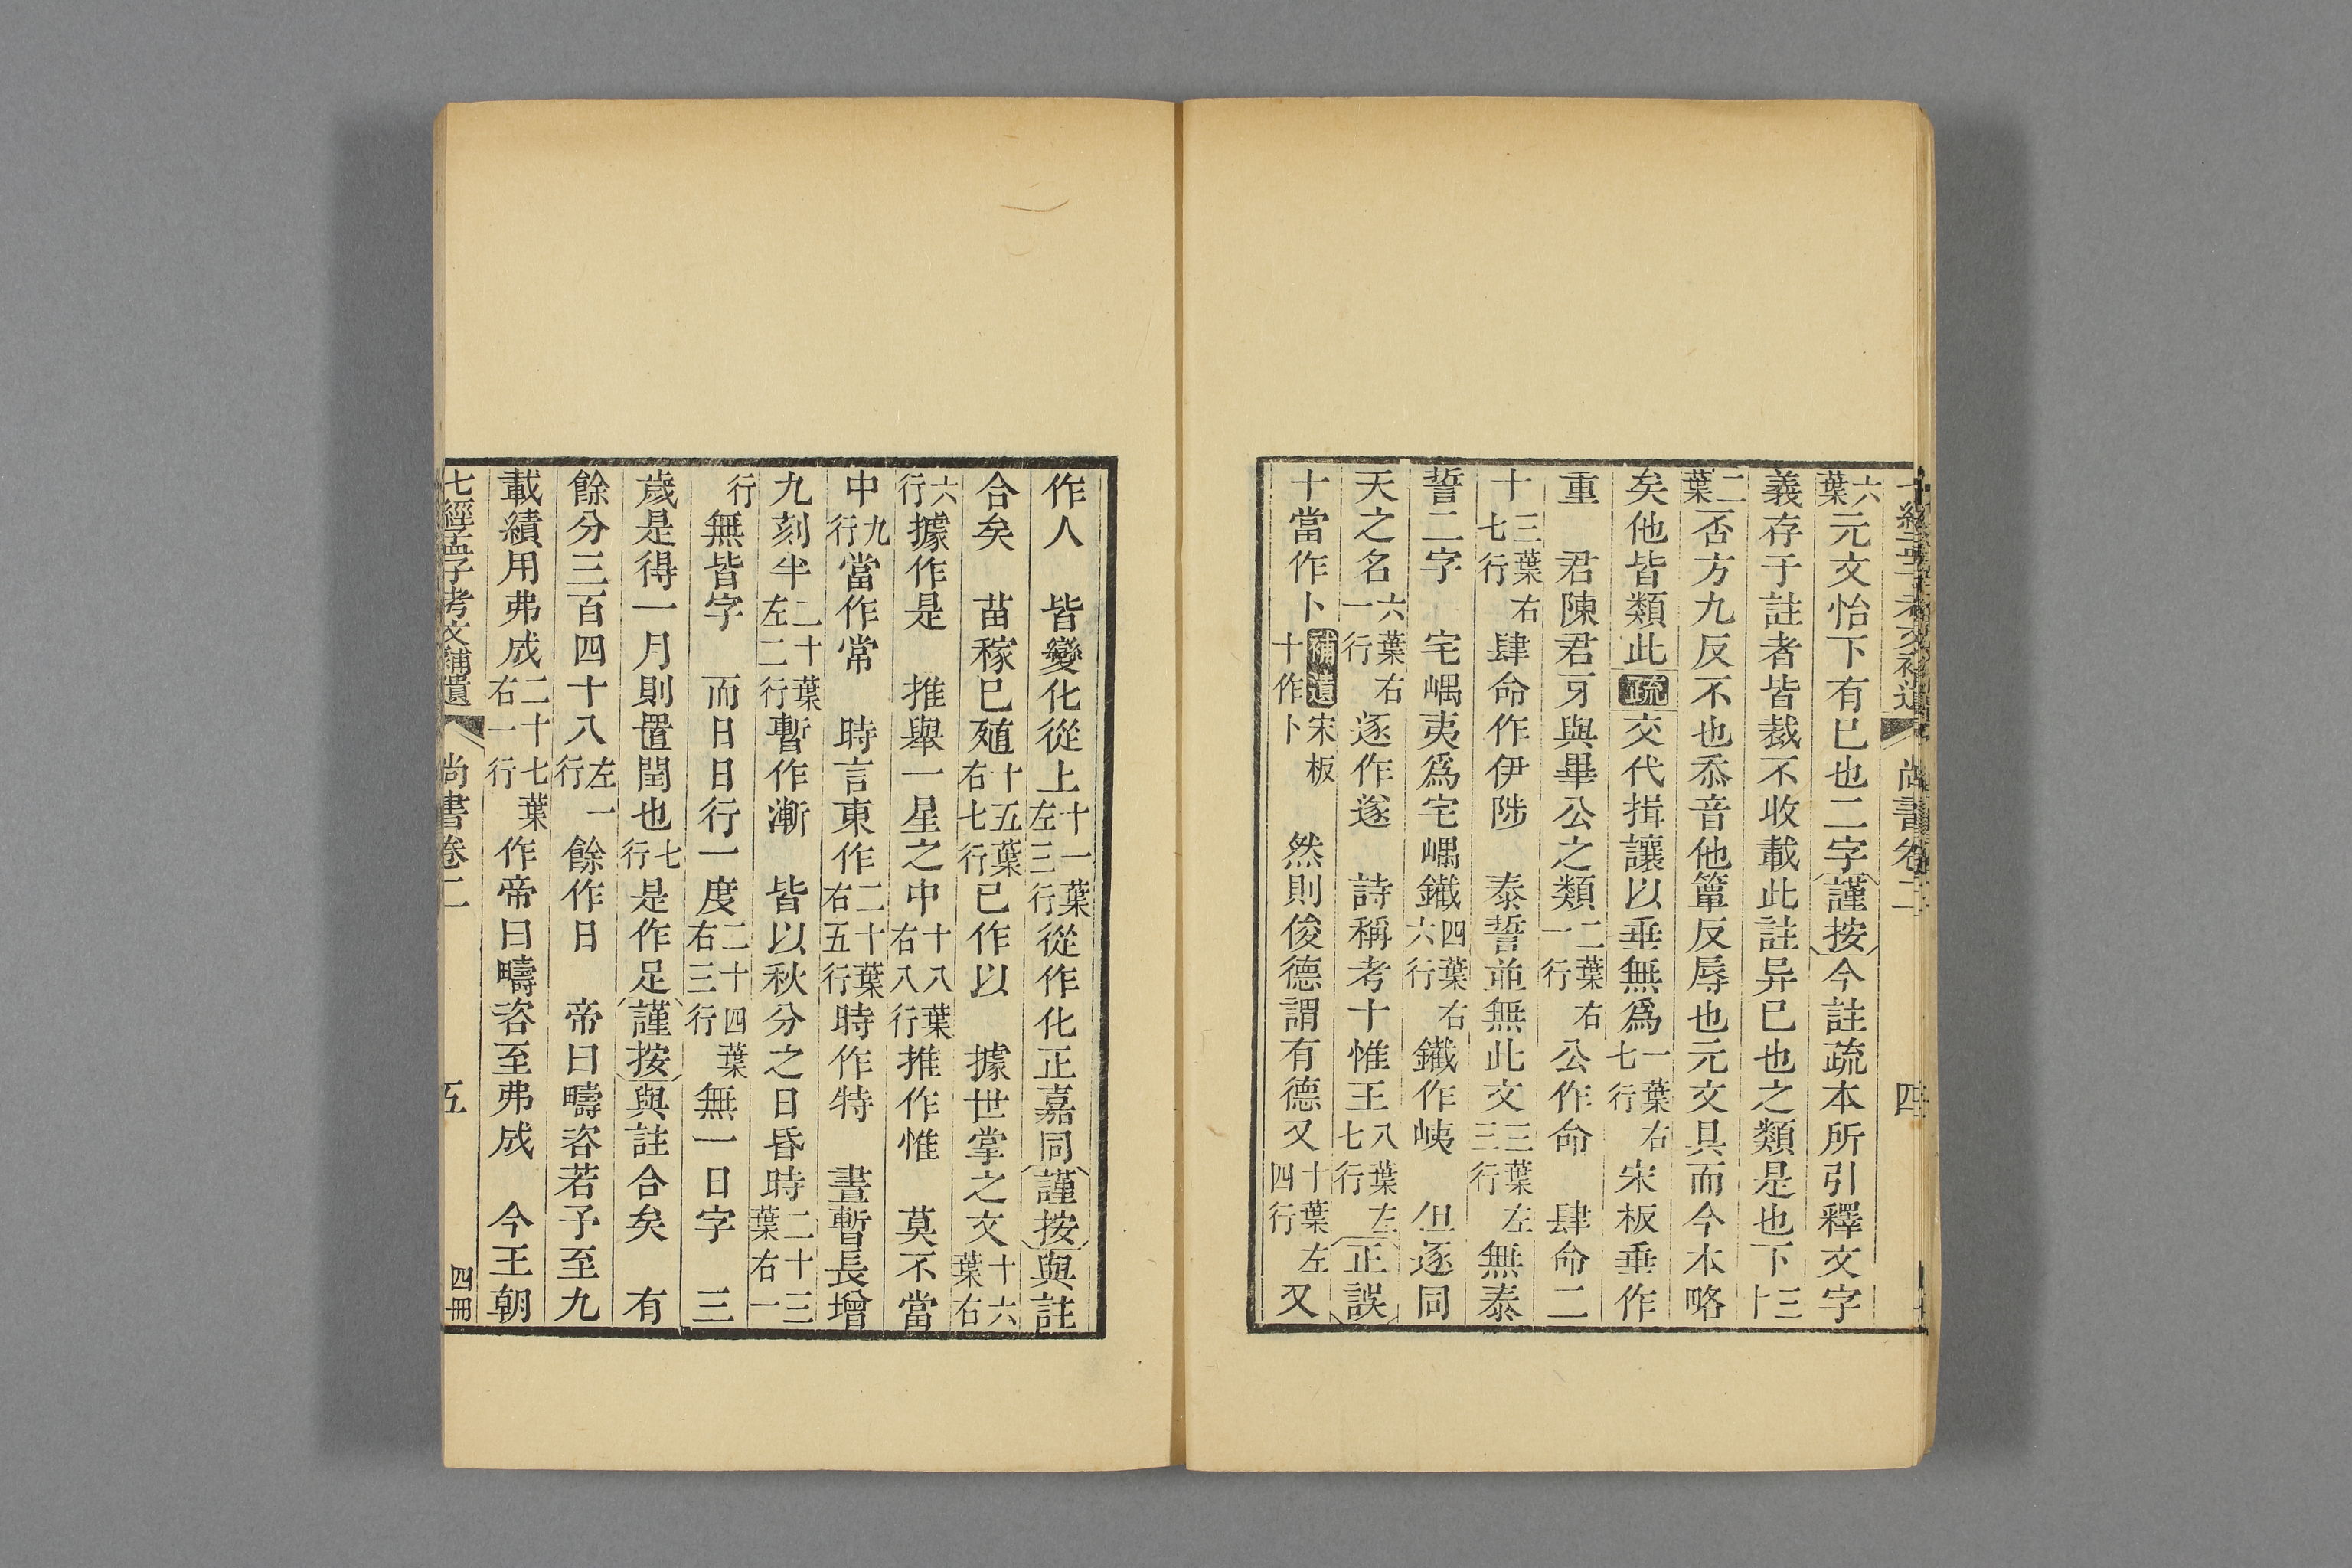 七經孟子考文補遺 尚書卷二 四
六葉元文怡下有巳也二字謹按今註疏本所引釋文字
義存于註者皆裁不收載此註异巳也之類是也下三十
二葉否方九反不也忝音他簟反辱也元文具而今本略
矣他皆類此疏交代揖讓以垂無爲一葉右七行宋板垂作
重 君陳君牙與畢公之類二葉右一行公作命 肆命二
十三葉右七行肆命作伊陟 泰誓並無此文三葉左三行無泰
誓二字 宅嵎夷爲宅嵎鐵四葉右六行鐵作峓 但逐同
天之名六葉右一行逐作遂 詩稱考十惟王八葉左七行正誤
十當作卜補遺宋板十作卜 然則俊德謂有德又十葉左四行又
作人 皆變化從上十一葉左三行從作化正嘉同謹按與註
合矣 苗稼巳殖十五葉右七行巳作以 據世掌之文十六葉右
六行據作是 推舉一星之中十八葉右八行推作惟 莫不當
中九行當作常 時言東作二十葉右五行時作特 晝暫長增
九刻半二十葉左二行暫作漸 皆以秋分之日昏時二十三葉右一
行無皆字 而日日行一度二十四葉右三行無一日字 三
歲是得一月則置閏也七行是作足謹按與註合矣 有
餘分三百四十八左一行餘作日 帝曰疇咨若予至九
載績用弗成二十七葉右一行作帝曰疇咨至弗成 今王朝
七經孟子考文補遺 尚書卷二 五 四冊